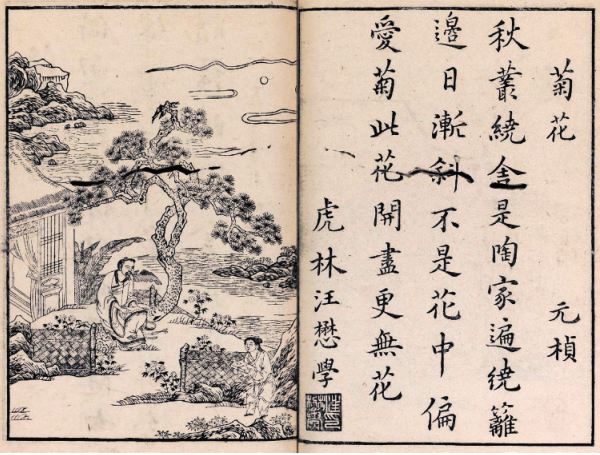 菊花 元楨
秋叢繞舍是陶家遍繞籬
邊日漸斜不是花中偏
愛菊此花開盡更無花
虎林汪懋學